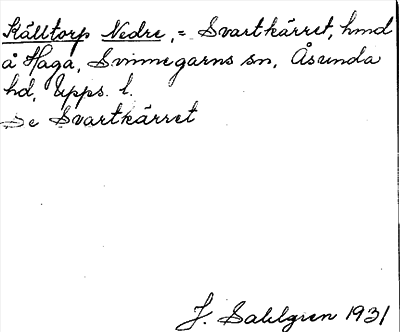 Källtorp Nedre, = Svartkärret, hmd
å Haga, Svinnegarns sn, Åsunda
hd, Upps. l.
Se Svartkärret
J. Sahlgren 1931